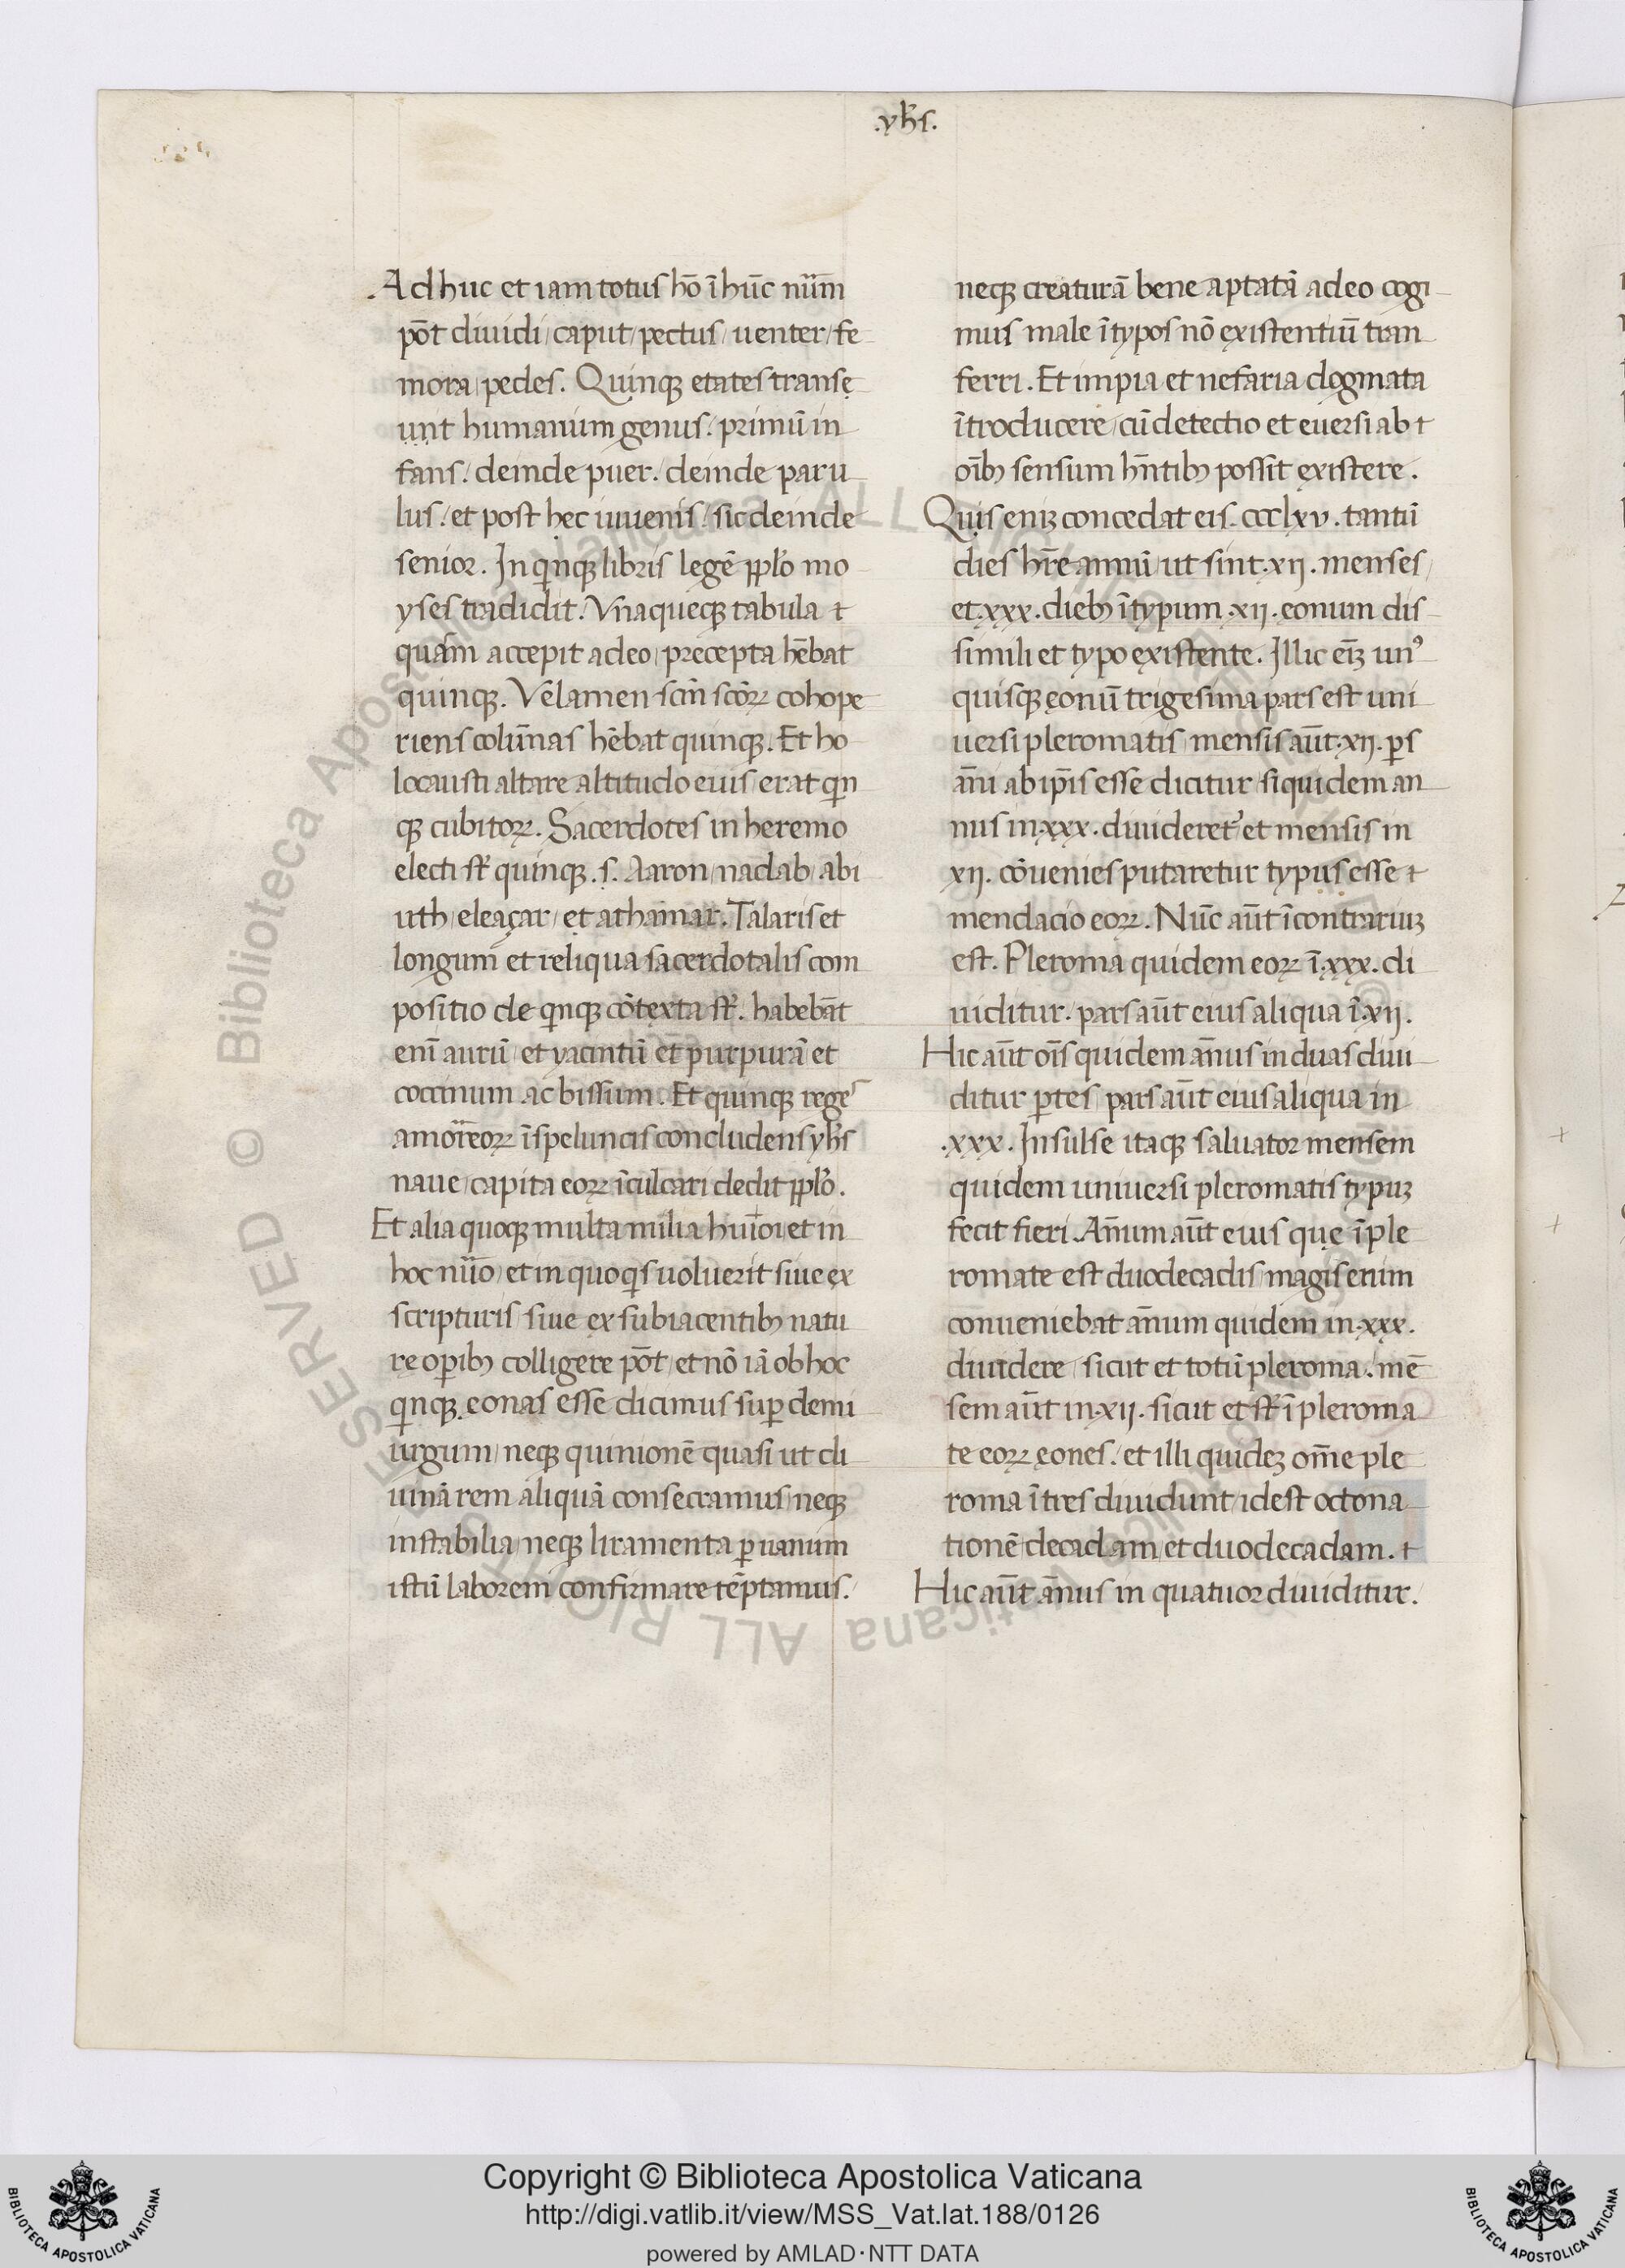 .yħs.
Adhuc et iam totus hō ī hūc nūm
pōt diuidi/ caput/ pectus/ uenter/ fe
mora/ pedes. Quinqꝫ etates transę
unt humanum genus/. primū in
fans/. deinde puer/. deinde paru
lus/. et post hec iuuenis/. sic deinde
senior. In qͥnqꝫ libris legē pplo mo
yses tradidit. Vnaqueqꝫ tabula ⁊
quam accepit a deo/ precepta hēbat
quinqꝫ. Velamen scm̄ scōꝝ cohope
riens colūnas hēbat quinqꝫ. Et ho
locausti altare altitudo eius/ erat qͥn
qꝫ cubitoꝝ. Sacerdotes in heremo
electi st̄ quinqꝫ .s. Aaron/ nadab/ abi
uth/ eleaçar/ et athamar. Talaris et
longum et reliqua sacerdotalis com
positio de qͥnqꝫ cōtexta st̄/. habebāt
enī aurū/ et yacintū et purpurā et
coccinum ac bissum. Et quinqꝫ reges
amorreoꝝ ī speluncis concludens yħs
naue/ capita eoꝝ īculcari dedit pplo.
Et alia quoqꝫ multa milia huiꝰmōi et in
hoc nūo/ et in quo qͥs uoluerit siue ex
scripturis/ siue ex subiacentibꝫ natu
re oꝑibꝫ colligere pōt/ et nō iā ob hoc
qͥnqꝫ eonas esse dicimus suꝑ demi
urgum/ neqꝫ quinionē quasi ut di
uinā rem aliquā consecramus/ neqꝫ
instabilia/ neqꝫ liramenta ꝑ uanum
istū laborem confirmare tēptamus/.
neqꝫ creaturā bene aptatā a deo cogi
mus male ī typos nō existentiū tran
ferri. Et impia et nefaria dogmata
ītroducere/ cū detectio et euersi ab ⁊
oībꝫ sensum hn̄tibꝫ possit existere.
Quis eniꝫ concedat eis .ccclxv. tantū
dies hr̄e annū/ ut sint .xij. menses/
et .xxx. diebꝫ ī typum .xij. eonum dis
simili et typo existente. Illic eiꝫ unꝰ
quisqꝫ eonū trigesima pars est uni
uersi pleromatis/ mensis aūt .xij. ꝑs
ān̄i ab ip̄is esse dicitur/ siquidem an
nus in .xxx. diuideretᷣ et mensis in
xij. cōuenies putaretur typus esse ⁊
mendacio eoꝝ. Nūc aūt ī contrariuꝫ
est. Pleroma quidem eoꝝ ī .xxx. di
uiditur/. pars aūt eius aliqua ī .xij.
Hic aūt oīs quidem ānus in duas diui
ditur ꝑtes/ pars aūt eius aliqua in
.xxx. Insulse itaqꝫ saluator mensem
quidem uniuersi pleromatis typuꝫ
fecit fieri. Ānum aūt eius que ī ple
romate est duodecadis/ magis enim
conueniebat ānum quidem in .xxx.
diuidere/ sicut et totū pleroma/. mē
sem aūt in .xij. sicut et st̄ ī pleroma
te eoꝝ eones/. et illi quideꝫ om̄e ple
roma ī tres diuidunt/ idest octona
tionē decadam/ et duodecadam. ⁊
Hic aūt ānus in quatuor diuiditur.
Copyright © Biblioteca Apostolica Vaticana
http://digi.vatlib.it/view/MSS_Vat.lat.188/0126
powered by AMLAD·NTT DATA